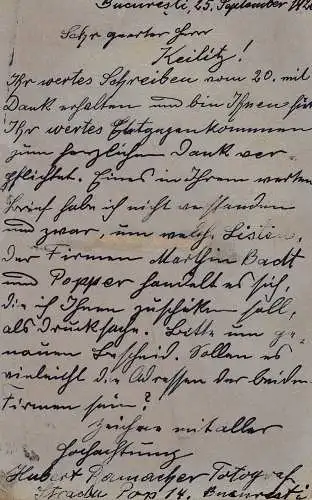 Bucureşti, 25. September
Sehr geerter Herr
Keilitz!
Ihr wertes Schreiben vom 20. mit
Dank erhalten und bin Ihnen für
Ihr wertes Entgegenkommen
zum herzlichen Dank ver-
pflichtet. Eines in Ihrem werten
Brief habe ich nicht verstanden
und zwar, um welche Listen,
der Firmen Marthin Badt
und Popper handelt es sich,
die ich Ihnen zuschiken soll,
als Drucksage. Bitte um ge-
nauen Bescheid. Sollen es
vieleicht die Adressen der beiden
Firmen sein?
Zeichne mit aller
Hochachtung
Hubert Ramacher Fotograf
Strada Pop 14. Bucuresti